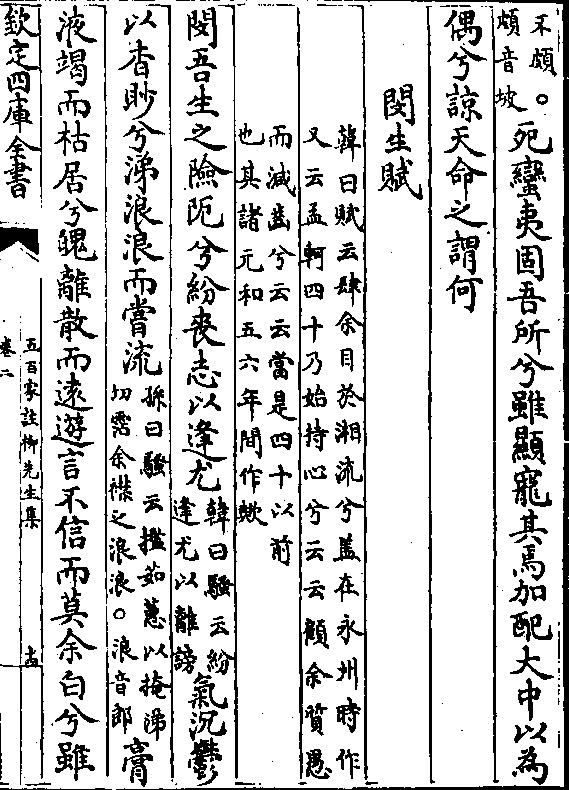 不頗。頗音坡死蠻夷固吾所兮雖顯寵其焉加配大中以為
偶兮諒天命之謂何
閔生賦
韓曰賦云肆余目於湘流兮盖在永州時作
又云孟軻四十乃始持心兮云云顧余質愚
而減齒兮云云當是四十以前
也其諸元和五六年間作歟
閔吾生之險阨兮紛喪志以逢尤韓曰騷云紛逢尤以離謗氣沉鬱
以杳眇兮涕浪浪而嘗流孫曰騷云攬茹蕙以掩涕切霑余襟之浪浪。浪音郎膏
液竭而枯居兮魄離散而遠遊言不信而莫余白兮雖
欽定四庫全書
五百家註柳先生集
卷二
十四